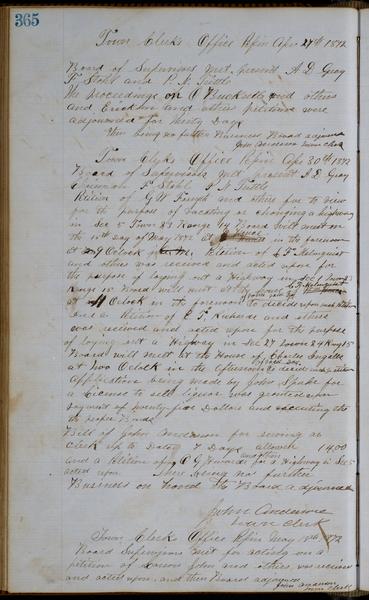 365
Town Clerks Office Pepin Apr 27th 1872
Board of Supervisors met present A D Gray
F Stahl and P N Tuttle
The proceedings on O Bucksetts and others
and Erickson and others petitions were
adjourned for Thirty Days
There being no further Business Board adjourned
John Anderson Town Clerk
Town Clerks Office Pepin Apr 30th 1872
Board of Supervisors met present A D Gray
Chairman F Stahl P N Tuttle
Petition of G W and others for to view
for the purpose of Vacating or changing a highway
in Sec 5 Town 23 Range 15 Board will meet on
the day of May 1872 at in the forenoon
at 9 O Clock Petition of C F Holmquist
and others was received and acted upon for
the purpose of laying out a Highway in Sec 1 Town 23
Range 15 Board will meet at the house of C F Holmquist
at O Clock in the forenoon to decide upon such petition
and a Petition of and others
was received and acted upon for the purpose
of laying out a Highway in Sec 27 Town 24 Rang 15
Board will meet at the House of Charles Ingalls
at two O Clock in the afternoon to decide such petition
Application being made by John for
a License to sell liquor was granted upon
payment of twenty five Dollars and executing the
proper Bonds
Bill of John Anderson for serving as
Clerk up to Date 7 Days allowed 14.00
and a Petition of and others for a Highway in Sec 5
acted upon There being no further
Business on hand the Board adjourned
John Anderson
Town Clerk
Town Clerks Office Pepin May 1872
Board Supervisors met for acting on a
petition of John and others was received
and acted upon and then Board adjourned
John Anderson
Town Clerk